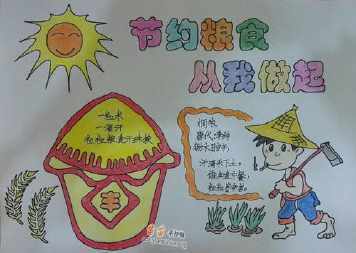 节约粮食
从我做起
一粒米
一滴汗
粒粒粮食汗珠换
悯农
唐代:李绅
锄禾日当午,
汗滴禾下土。
谁知盘中餐,
粒粒皆辛苦。
丰